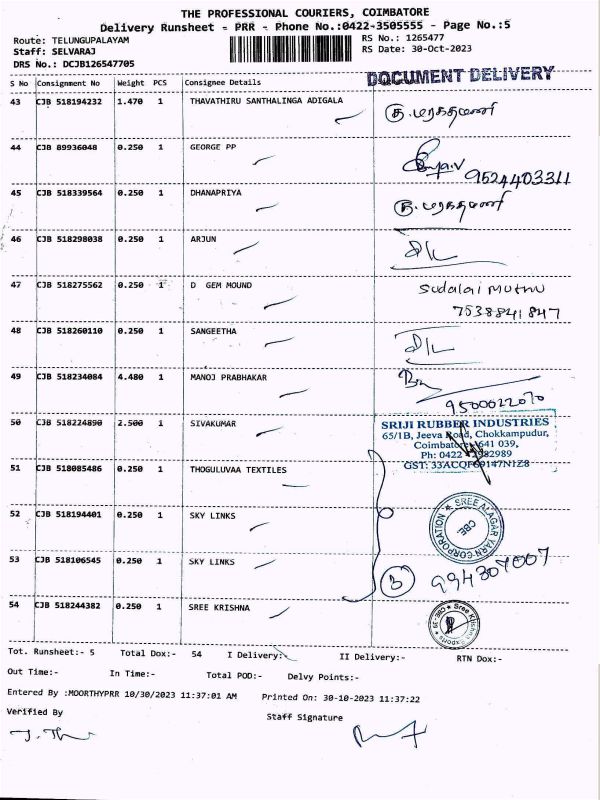 THE PROFESSIONAL COURIERS, COIMBATORE
Delivery Runsheet - PRR - Phone No.:0422-3505555 - Page No.:5
Route: TELUNGUPALAYAM RS No.: 1265477
Staff: SELVARAJ RS Date: 30-Oct-2023
DRS No.: DCJB126547705
DOCUMENT DELIVERY
S No Consignment No Weight PCS Consignee Details
43 CJB 518194232 1.470 1 THAVATHIRU SANTHALINGA ADIGALA
44 CJB 89936048 0.250 1 GEORGE PP
9524403311
45 CJB 518339564 0.250 1 DHANAPRIYA
46 CJB 518298038 0.250 1 ARJUN
47 CJB 518275562 0.250 1 D GEM MOUND
Sudalai Muthu
7538841847
48 CJB 518260110 0.250 1 SANGEETHA
49 CJB 518234084 4.480 1 MANOJ PRABHAKAR
9500022070
50 CJB 518224890 2.500 1 SIVAKUMAR
SRIJI RUBBER INDUSTRIES
65/1B, Jeeva Road, Chokkampudur,
Coimbatore 641 039,
Ph: 0422
51 CJB 518085486 0.250 1 THOGULUVAA TEXTILES
52 CJB 518194401 0.250 1 SKY LINKS
SREE ALAGAR YARN CORPORATION
CBE
53 CJB 518106545 0.250 1 SKY LINKS
3
54 CJB 518244382 0.250 1 SREE KRISHNA
Sree Krishna Exports
Tot. Runsheet:- 5 Total Dox:- 54 I Delivery:- II Delivery:- RTN Dox:-
Out Time:- In Time:- Total POD:- Delvy Points:-
Entered By :MOORTHYPRR 10/30/2023 11:37:01 AM Printed On: 30-10-2023 11:37:22
Verified By Staff Signature